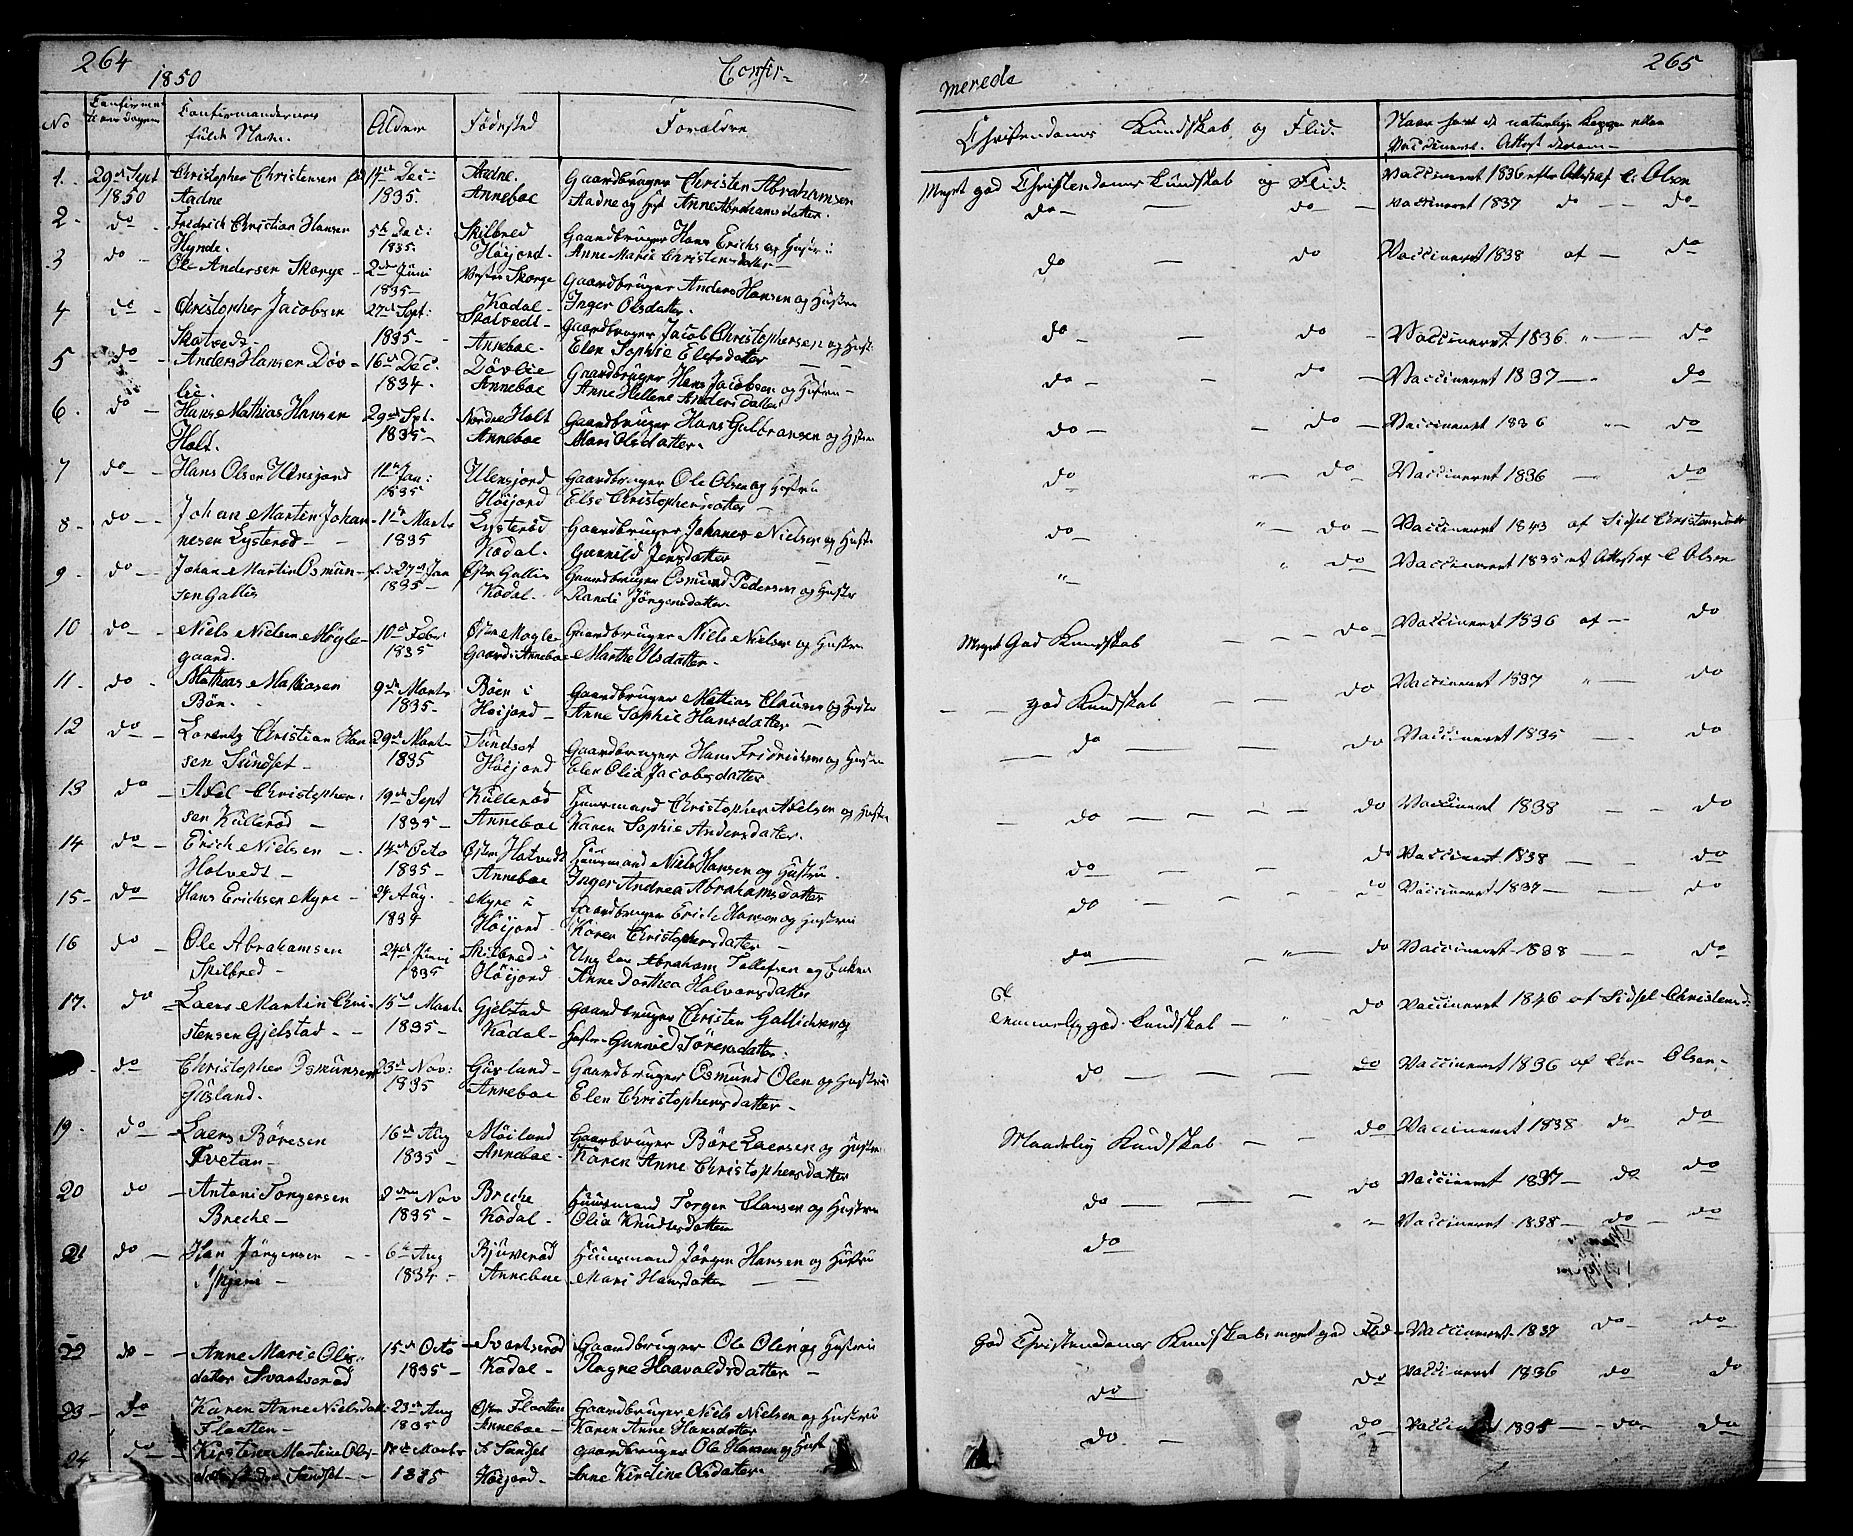 264
1850
Confir-
No
Confirma-
tions Dagen
Confirmandernes
fulde Navn.
Alder
Födested
Forældre
1. 29de Sept 1850 Christopher Christensen Aadne 14de Dec: 1835. Aadne. Anneboe Gaardbruger Christen Abrahamsen Aadne og Anne Abrahamsdatter.
2 do Fredrich Christian Hansen Hynde. 5te Dec: 1835. Skilbred Höijord. Gaardbruger Hans Erichs og Hustru Anne Marie Christensdatter
3 do Ole Andersen Skorge 2de Juni 1835 Vestre Skorge Kodal Gaardbruger Anders Hansen og Hustru Inger Olsdatter.
4 do Christopher Jacobsen Skatvedt 27de Sept: 1835 Skatvedt Anneboe. Gaardbruger Jacob Christophersen og Hust: Elen Sophie Elefsdatter
5 do Anders Hansen Dövlie. 16de Dec. 1834. Dövlie Anneboe Gaardbruger Hans Jacobsen og Hustru Anne Hellene Andersdatter
6. do Hans Mathias Hansen Holt. 29de Spt. 1835 Nordre Holt Anneboe Gaardbruger Hans Gulbransen og Hustru Mari Olsdatter.
7 do Hans Olsen Ulensjord 11te Jan: 1835 Ulensjord Höijord Gaardbruger Ole Olsen og Hustru Else Christophersdatter
8 do Johan Marten Johannesen Lysteröd 11te Marts 1835 Lysteröd Kodal. Gaardbruger Johanes Nielsen og Hustr. Gunnild Jensdatter
9. do Johan Martin Osmunsen Gallis 27de Jan 1835 Östre Gallis Kodal. Gaardbruger Osmund Pedersen og Hustr. Randi Jörgensdatter.
10 do Niels Nielsen Möglegaard. 10de Febr 1835 Östre Moglegaard i Anneboe Gaardbruger Niels Nielsen og Hustru Marthe Olsdatter.
11. do Mathias Mathiasen Bön. 9de Marts 1835. Böen i Höijord Gaardbruger Mathias Clausen og Hustr. Anne Sophie Hansdatter
12 do Lorentz Christian Hansen Sundset 29de Marts 1835 Sundset Höijord Gaardbruger Hans Fridrichsen og Hustru Elen Olia Jacobsdatter
13 do Axel Christophersen Kulleröd 19de Sept 1835 Kulleröd Anneboe Huusmand Christopher Axelsen og Hustr. Karen Sophie Andersdatter.
14 do Erich Nielsen Hotvedt 14de Octo 1835 Östre Hotvedt Anneboe Huusmand Niels Hansen og Hustru. Inger Andrea Abrahamsdatter
15 do Hans Erichsen Myre 27 Aug. 1834 Myre i Höijord Gaardbruger Erich Hansen og Hustru Karen Christophersdatter
16 do Ole Abrahamsen Skilbred 24de Juni 1835 Skilbred i Höijord Ung Kar Abraham Tollefsen og Enken Anne Dorthea Halvorsdatter
17. do Laers Martin Christensen Gjelstad 15de Marts 1835 Gjelstad Kodal Gaardbruger Christen Gallichsen og Hustr. Gunnild Sörensdatter.
do Christopher Osmunsen Gusland. 23de Nov: 1835 Gusland Anneboe Gaardbruger Osmund Olsen og Hustru Elen Christophersdatter
19. do Laers Böresen Tvetan 16de Aug 1835 Möiland Anneboe Gaarbruger Böre Laersen og Hustru Karen Anne Christophersdatter
20 do Antoni Torgersen Breche 8de Nov 1835 Breche Kodal. Huusmand Torger Clausen og Hustru Olia Knudsesdatter
21 do Han Jörgensen 6te Aug 1834 Bjuveröd Anneboe Huusmand Jörgen Hansen og Hustru Mari Hansdatter
22 do Anne Marie Olisdatter Svartseröd 15de Octo 1835 Svartseröd Kodal. Gaardbruger Ole Olsen og Hustru Ragne Haavaldsdatter
23 do Karen Anne Nielsdat. Flaatten 23de Aug 1835 Östre Flaatten Anneboe Gaardbruger Niels Nielsen og Hustru Karen Anne Hansdatter
24 do Kirstine Martine Olsdatter Sundset Marts 1835 Sundset Höijord gaardbruger Ole Hansen og Hust Anne Kirstine Olsdatter.
merede
265
Christendoms Kundskab og Flid.
Naar havt de naturlige Kopper eller
Vaccineret. Attest derom
Meget god Christendoms Kundskab og Flid. Vaccineret 1836 efter Attest af C: Olsen
do do Vaccineret 1837 do do
do do Vaccineret 1838 af do
do do Vaccineret 1836 " do
do do Vaccineret 1837 do
do do Vaccineret 1836 do
do do Vaccineret 1836 do
do do Vaccineret 1843 af Sidsel Christensdatt
" do Vaccineret 1835 Attest af C Olsen
Meget God Kundskab do Vaccineret 1836 af do
god Kundskab do Vaccineret 1837 " do
do do Vaccineret 1835 do
do do Vaccineret 1838 do
do do Vaccineret 1838 do
do do Vaccineret 1837 do
do do Vaccineret 1838 do
Temmelig god Kundskab do Vaccineret 1846 af Sidsel Christensd:
do do Vaccineret 1836 af Chr Olsen
Maadelig Kundskab do Vaccineret 1838 do do
do do Vaccineret 1837 do do
do " Vaccineret 1838 do do
God Christendoms Kundskab, meget god Flid Vaccineret 1837 do do
do do Vaccineret 1836 do do
do do Vaccineret 1835 do do